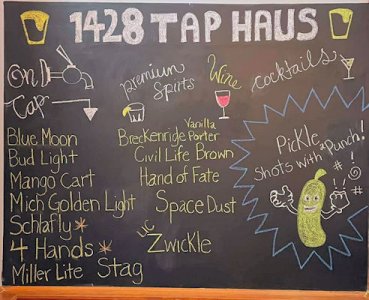 1428 TAP HAUS
On
Tap
premium
Spirits
Wine
cocktails
Blue Moon
Bud Light
Mango Cart
Mich Golden Light
Schlafly *
4 Hands *
Miller Lite
Stag
Breckenridge Vanilla Porter
Civil Life Brown
Hand of Fate
Space Dust
UC
Zwickle
Pickle
Shots with a "Punch!"